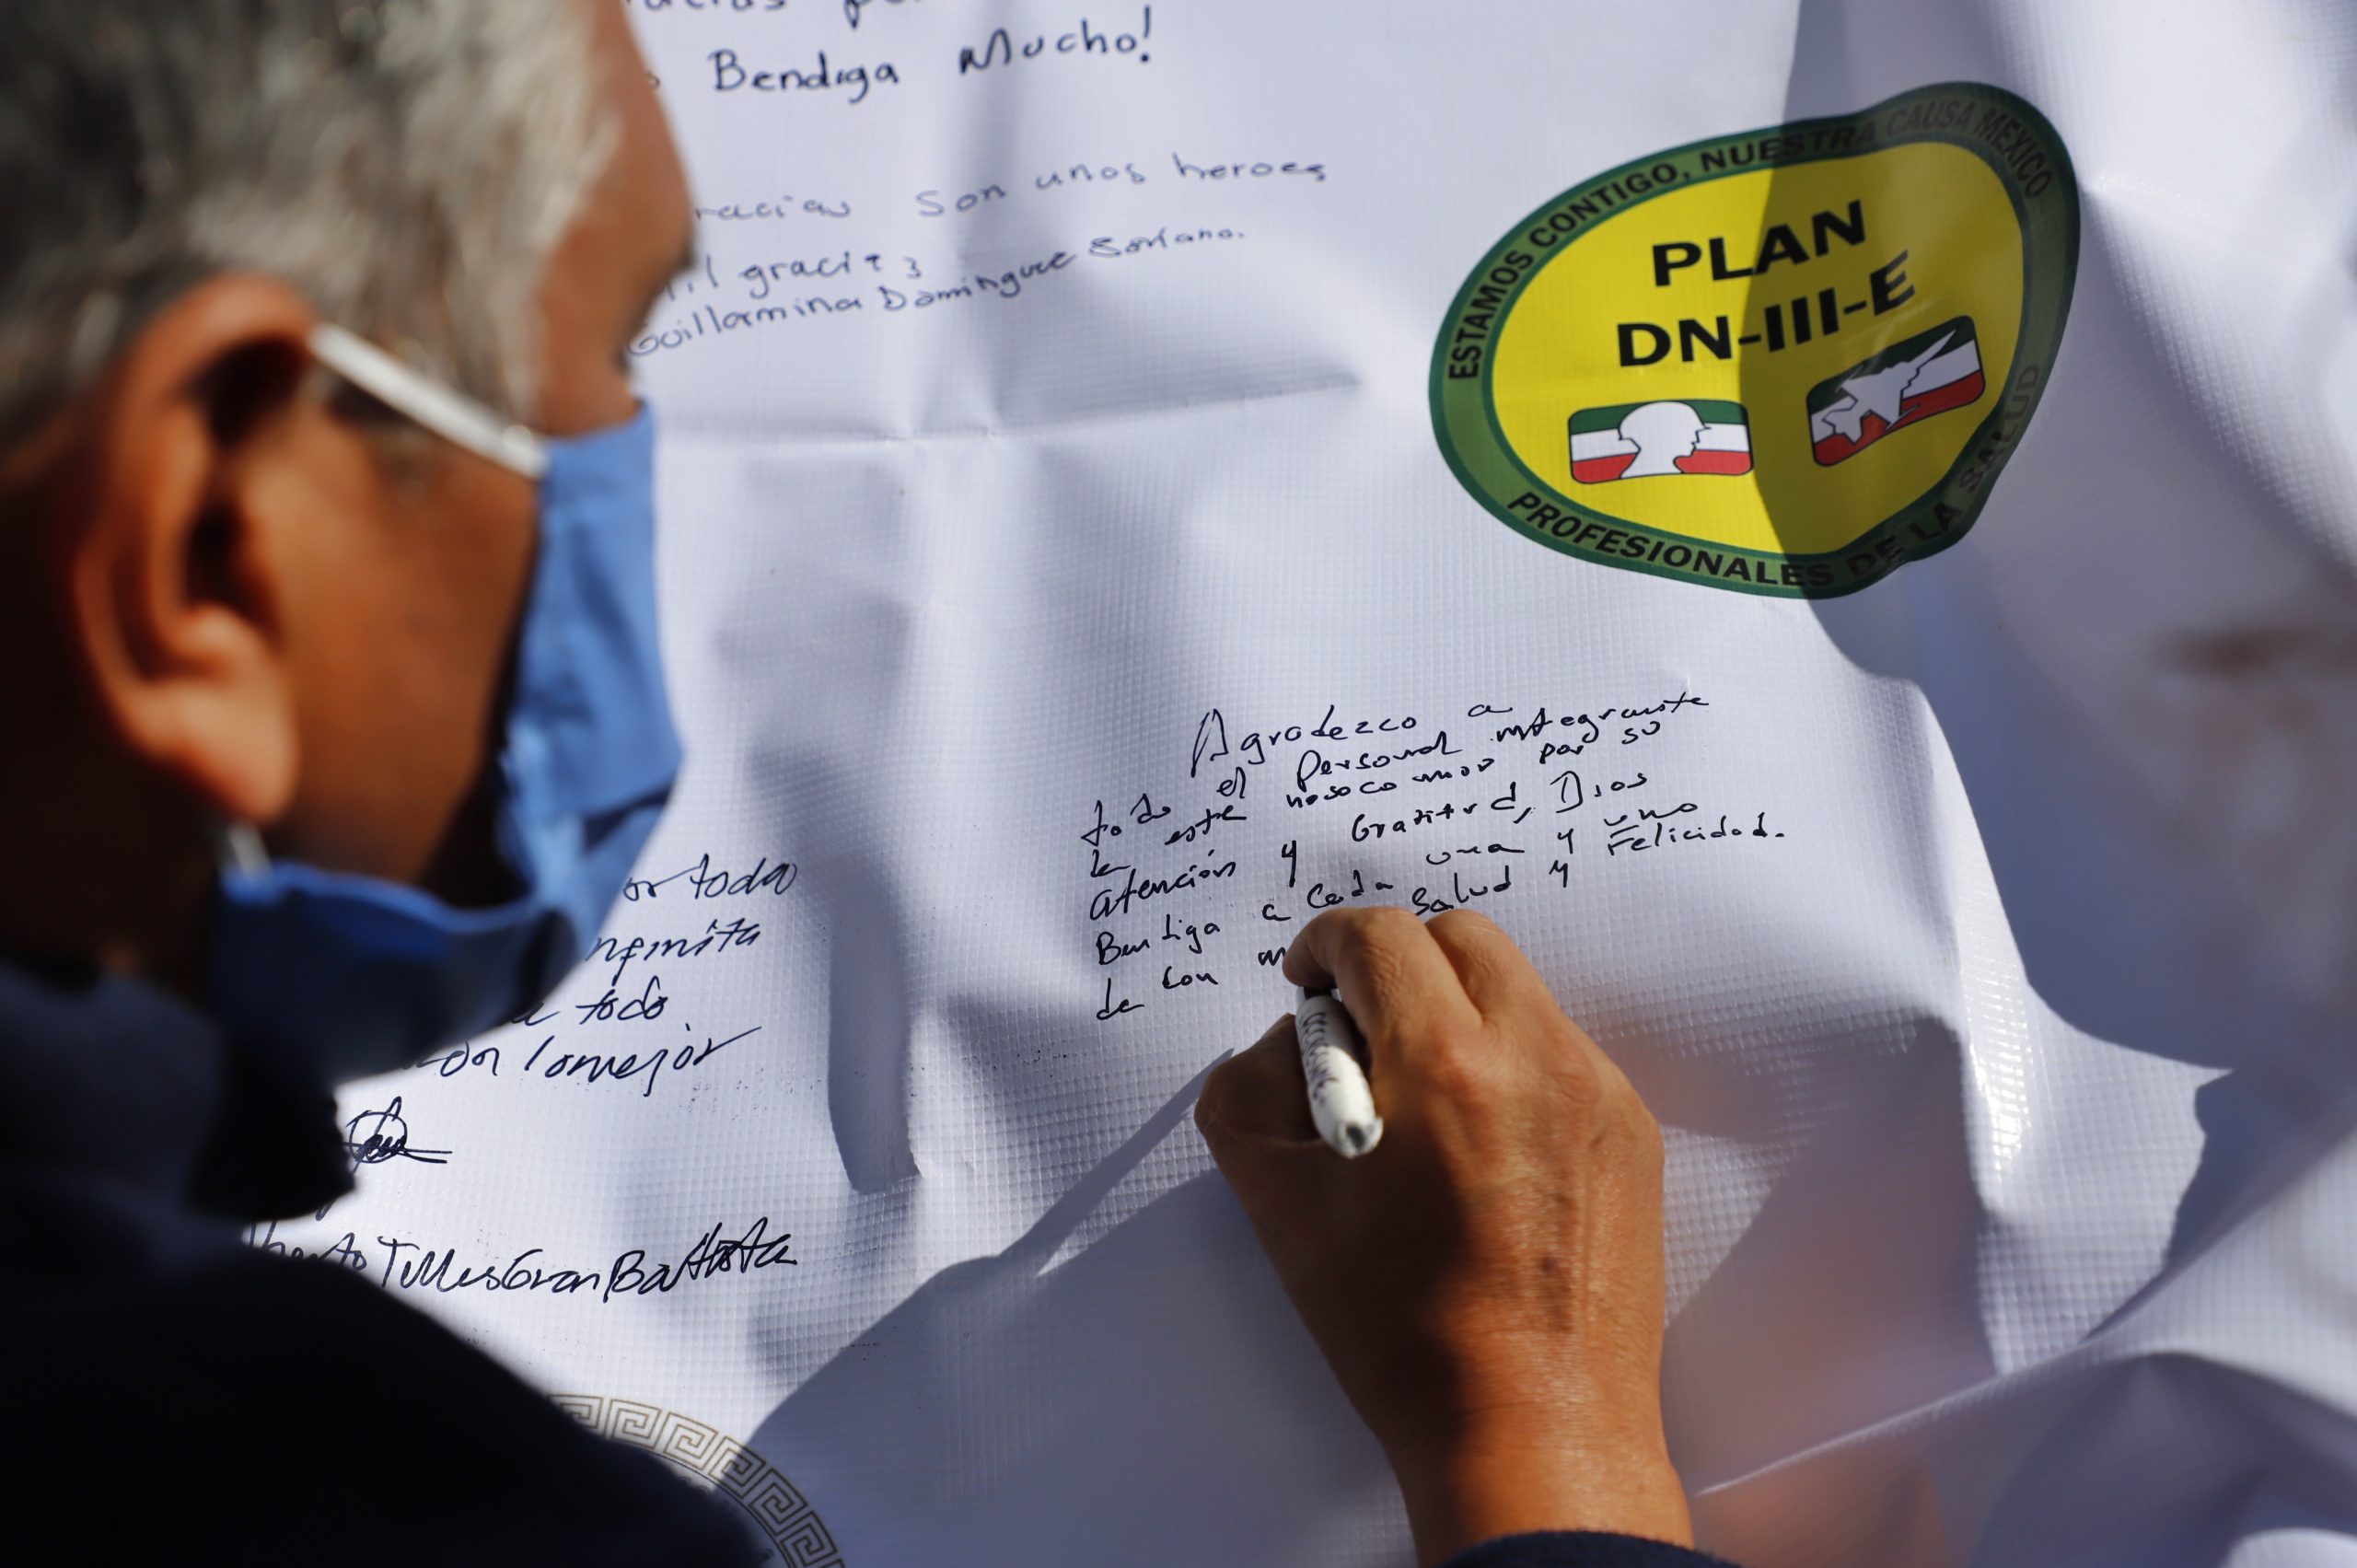 Bendiga Mucho!
racias son unos heroes
il gracias
Guillermina Dominguez Soriano.
ESTAMOS CONTIGO, NUESTRA CAUSA MEXICO
PLAN
DN-III-E
PROFESIONALES DE LA SALUD
Agradezco a
todo el Personal integrante
de este nosocomio por su
atención y Gratitud, Dios
Bendiga a Cada una y uno
de con m Salud y Felicidad.
or toda
todo
lo mejor